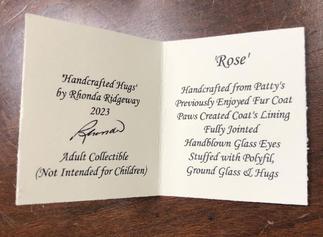 'Handcrafted Hugs'
by Rhonda Ridgeway
2023
Rhonda
Adult Collectible
(Not Intended for Children)
'Rose'
Handcrafted from Patty's
Previously Enjoyed Fur Coat
Paws Created Coat's Lining
Fully Jointed
Handblown Glass Eyes
Stuffed with Polyfil,
Ground Glass & Hugs